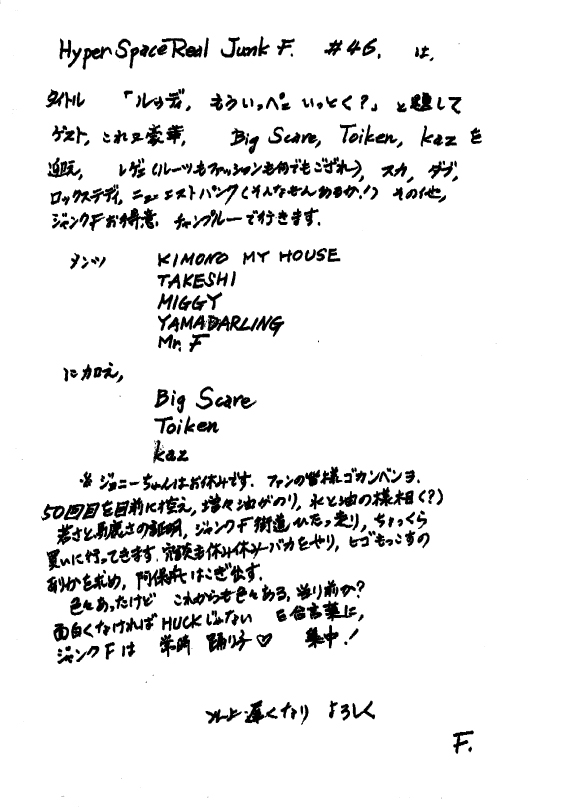 Hyper Space Real Junk F. #46. は、
タイトル 「ルゥディ, もういっぺん いっとく?」 と題して
ゲスト, これ又豪華, Big Scare, Toiken, kaz を
迎え, レゲエ(ルーツもファッションも何でもござれ), スカ, ダブ,
ロックステディ, ニューエストパンク(そんなもんあるか!) その他,
ジャンクFお得意, チャンプルーで行きます.
メンツ KIMONO MY HOUSE
TAKESHI
MIGGY
YAMADARLING
Mr. F
に加え,
Big Scare
Toiken
kaz
※ ジョニーちゃんはお休みです. ファンの皆様ゴカンベンヲ.
50回目を目前に控え, 増々油がのり, 水と油の様相く?)
若さと馬鹿さの証明, ジャンクF街道ひた走り, ちょっくら
買いに行ってきます. 冗談も休み休みバカをやり, ヒゴもっこすの
ありかを求め, 阿保丸はこぎ出す.
色々あったけど これからも色々ある, 当り前か?
面白くなければHUCKじゃない を合言葉に,
ジャンクFは 常時 踊り子♡ 集中!
遅くなり よろしく
F.